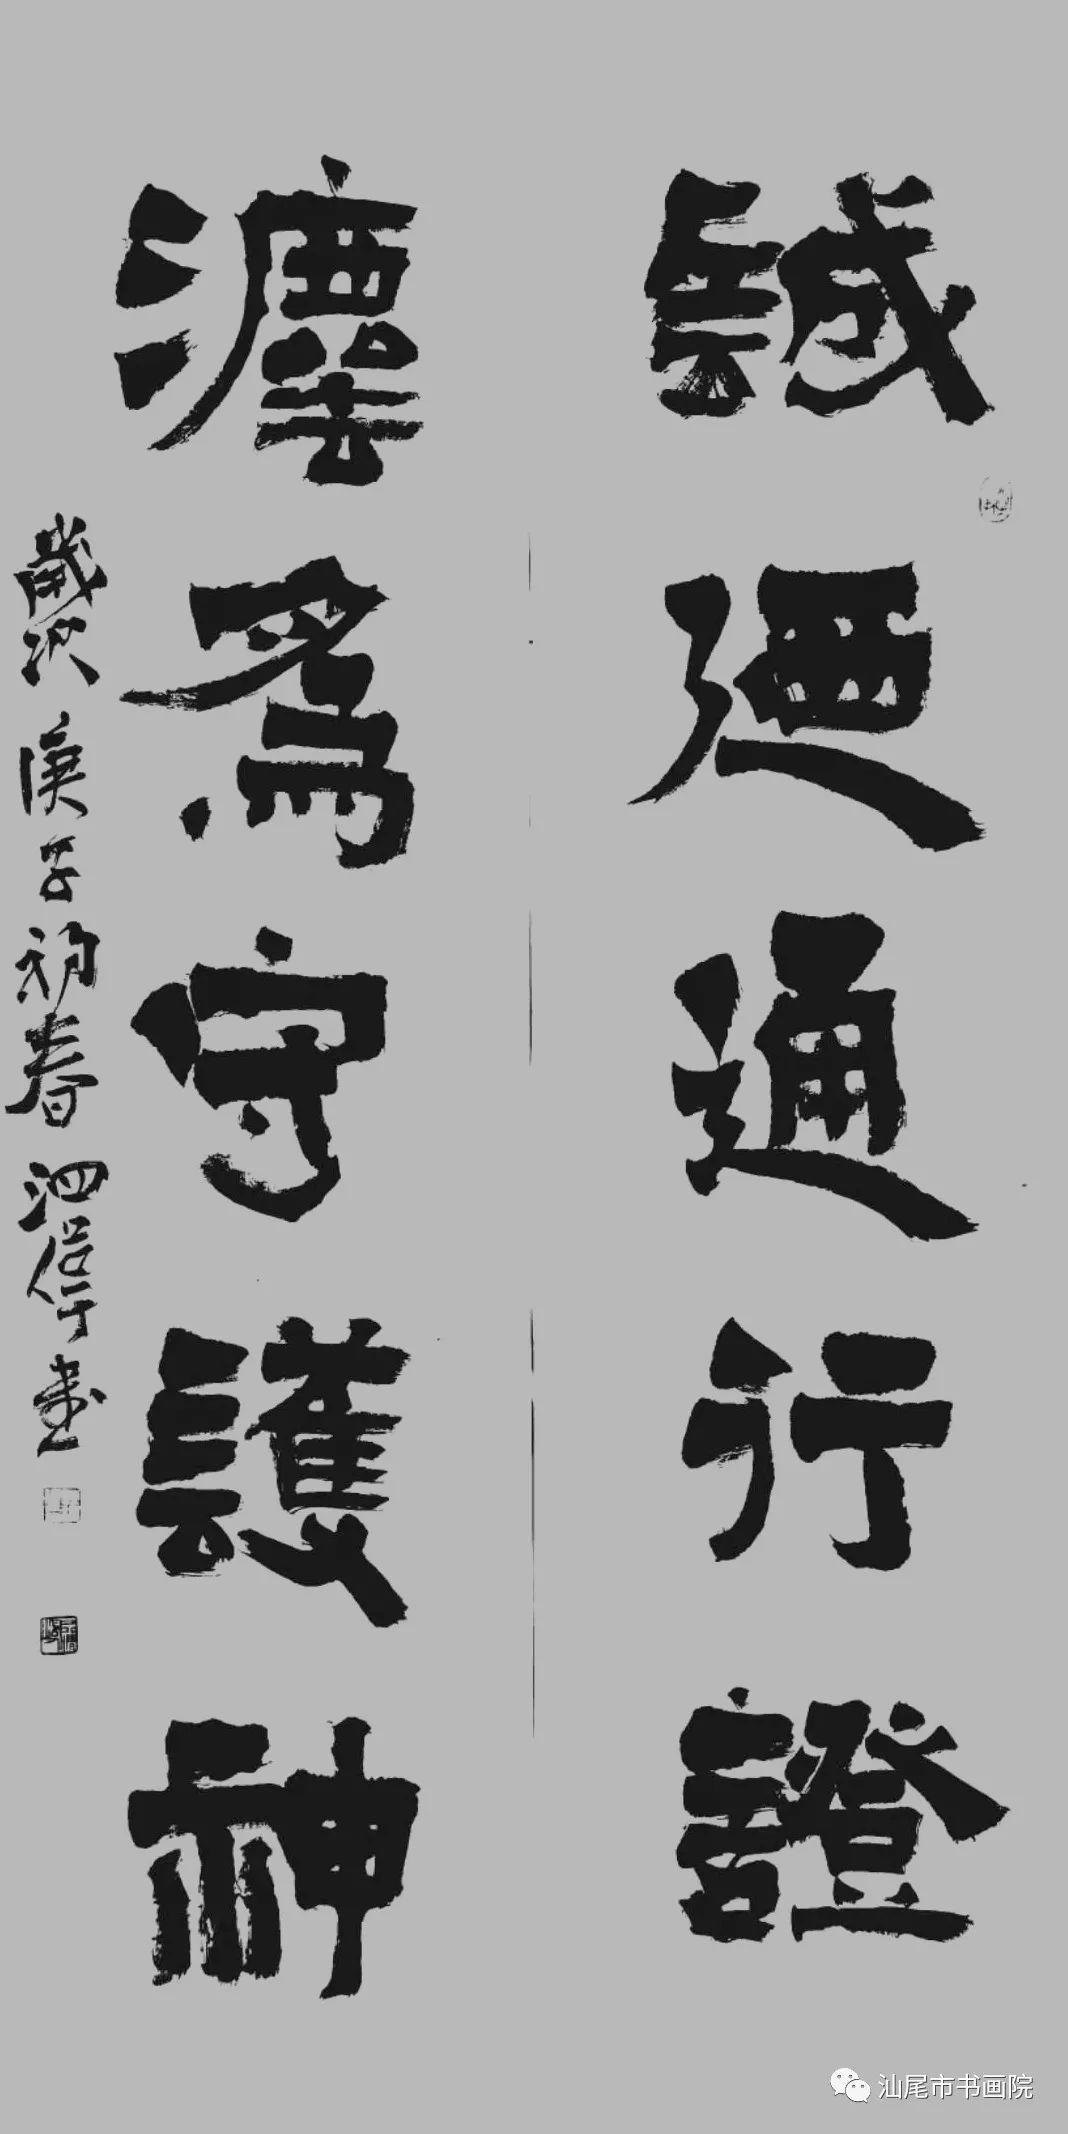 誠廼通行證
灋爲守護神
歲次庚子初春泗書
汕尾市书画院